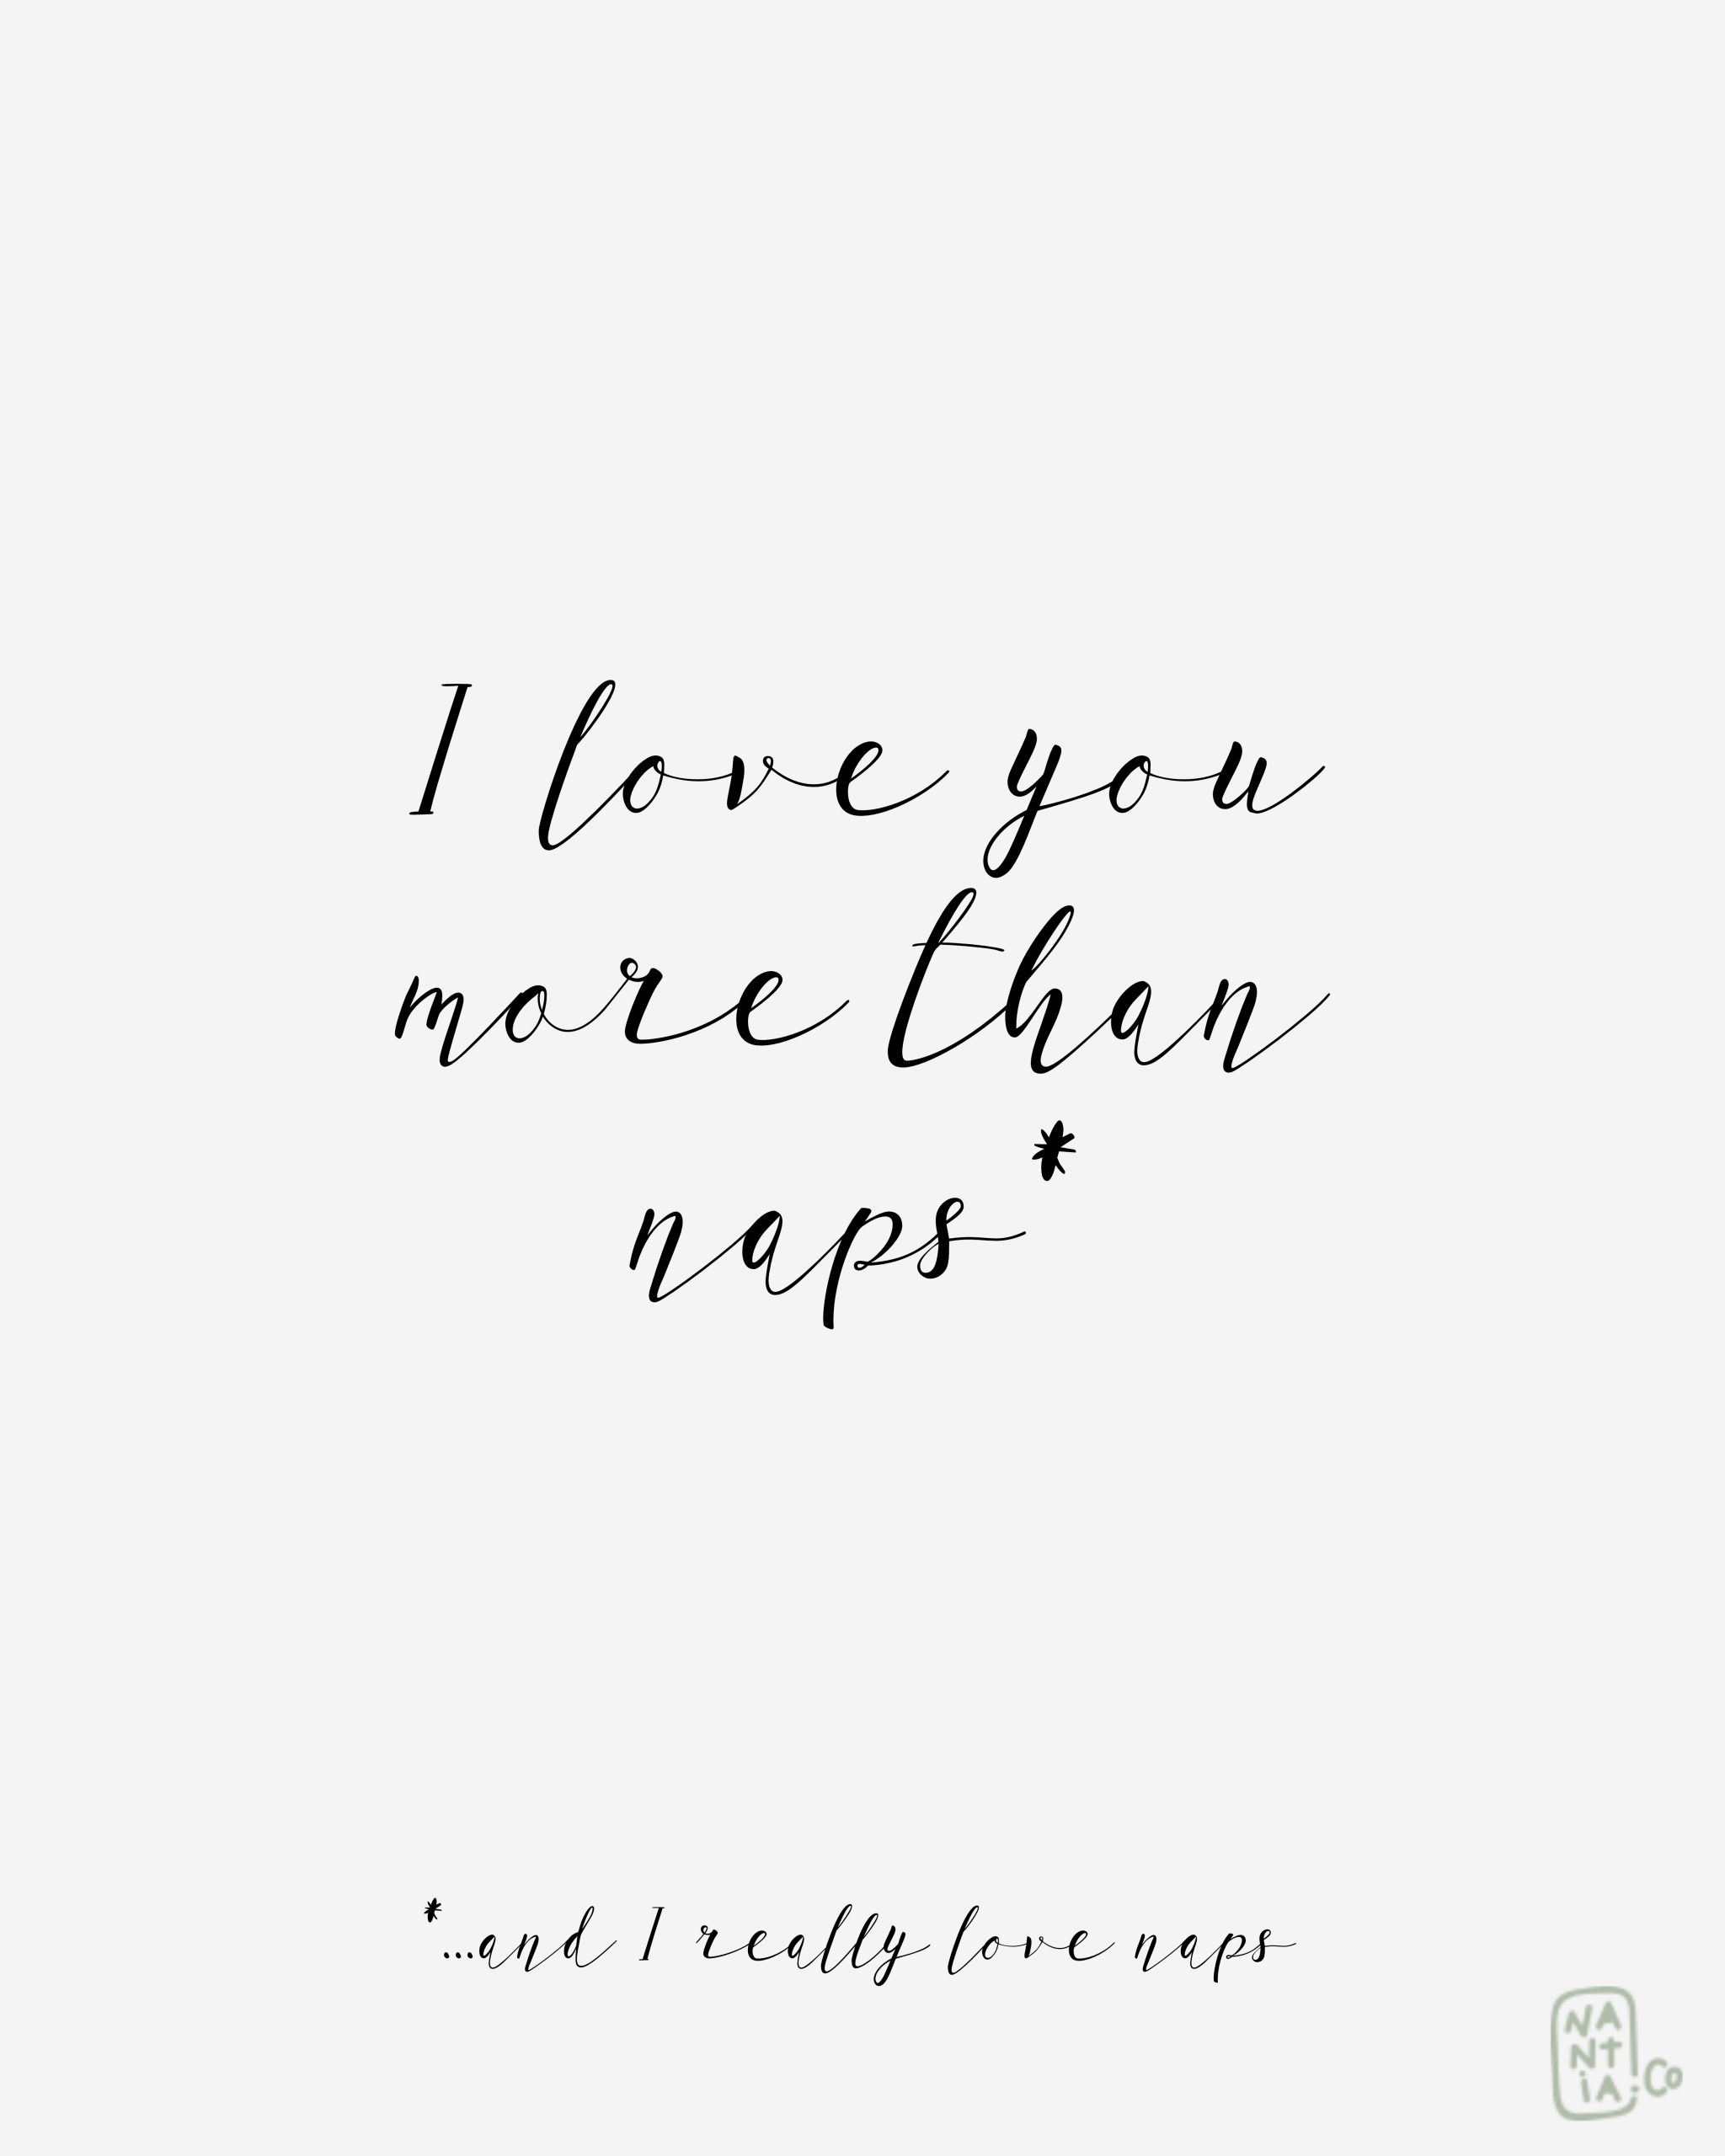 I love you
more than
naps*
*...and I really love naps
NA
Nt
iA.Co